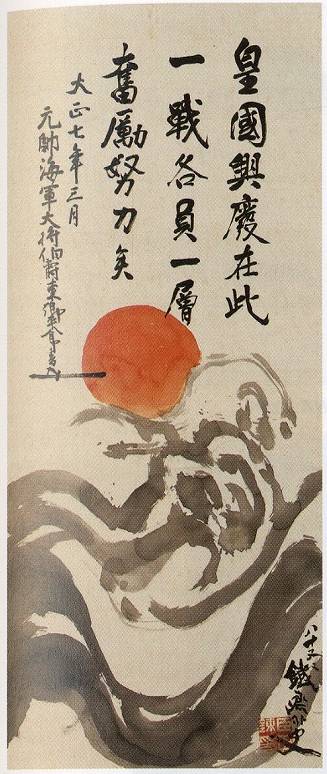 皇國興廢在此
一戰各員一層
奮勵努力矣
大正七年三月
元帥海軍大将伯爵東郷平八郎
鐵齋外史